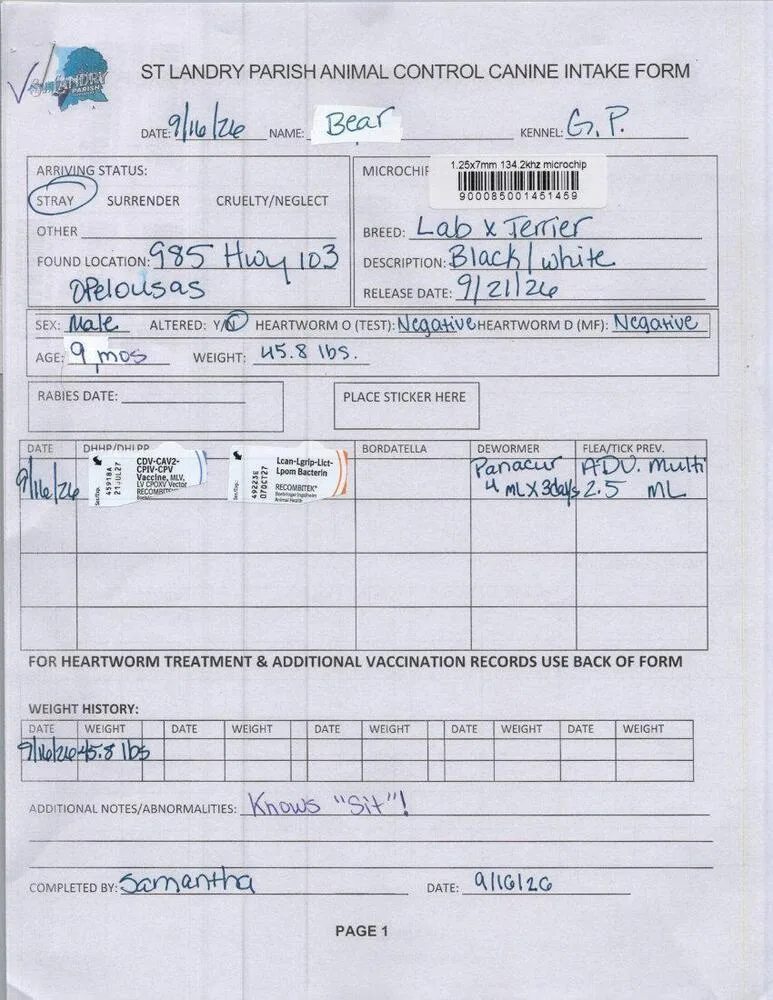 ST LANDRY PARISH
ST LANDRY PARISH ANIMAL CONTROL CANINE INTAKE FORM
DATE: 9/16/26 NAME: Bear KENNEL: G.P.
ARRIVING STATUS:
STRAY SURRENDER CRUELTY/NEGLECT
OTHER
FOUND LOCATION: 985 Hwy 103
Opelousas
MICROCHIP
1.25x7mm 134.2khz microchip
900085001451459
BREED: Lab x Terrier
DESCRIPTION: Black/white
RELEASE DATE: 9/21/26
SEX: Male ALTERED: Y/N HEARTWORM O (TEST): Negative HEARTWORM D (MF): Negative
AGE: 9 mos WEIGHT: 45.8 lbs.
RABIES DATE: PLACE STICKER HERE
DATE DHHP/DHLPP BORDATELLA DEWORMER FLEA/TICK PREV.
9/16/26
45918A
21JUL27
CDV-CAV2-
CPIV-CPV
Vaccine, MLV,
LV CPOXV Vector
RECOMBITEK
49223E
07OCT27
Lcan-Lgrip-Lict-
Lpom Bacterin
RECOMBITEK®
Boehringer Ingelheim
Animal Health
Panacur
4 ML X 3days
ADV. Multi
2.5 ML
FOR HEARTWORM TREATMENT & ADDITIONAL VACCINATION RECORDS USE BACK OF FORM
WEIGHT HISTORY:
DATE WEIGHT DATE WEIGHT DATE WEIGHT DATE WEIGHT DATE WEIGHT
9/16/26 45.8 lbs
ADDITIONAL NOTES/ABNORMALITIES: Knows "Sit"!
COMPLETED BY: Samantha DATE: 9/16/26
PAGE 1